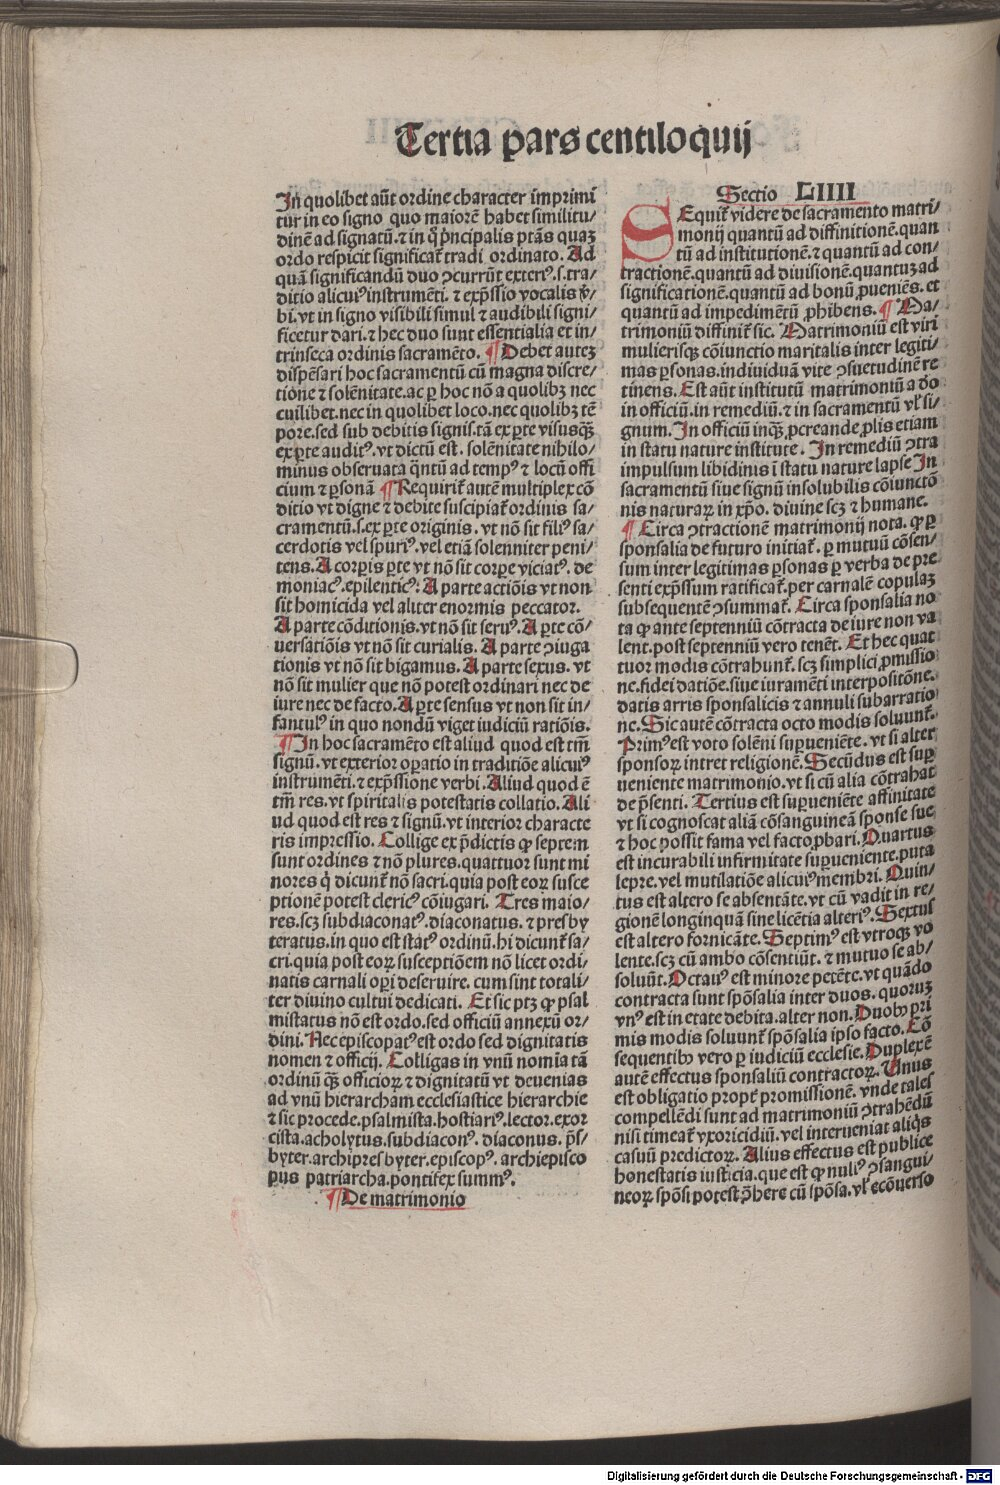 Tertia pars centiloquij
In quolibet aūt ordine character imprimi
tur in eo signo quo maiorē habet similitu/
dinē ad signatū. ⁊ in q̄ pͥncipalis ptās quaꝫ
ordo respicit significat̄ tradi ordinato. Ad
quā significandū duo ꝯcurrūt exteriꝰ. s. tra/
ditio alicuiꝰ instrumēti. ⁊ exp̄ssio vocalis v̄/
bi. vt in signo visibili simul ⁊ audibili signi/
ficetur dari. ⁊ hec duo sunt essentialia et in/
trinseca ordinis sacramēto. ¶ Debet auteꝫ
dispēsari hoc sacramentū cū magna discre/
tione ⁊ solēnitate. ac ꝑ hoc nō a quolibꝫ nec
cuilibet. nec in quolibet loco. nec quolibꝫ tē
pore. sed sub debitis signis. tā ex ꝑte visusqꝫ
ex ꝑte auditꝰ. vt dictū est. solēnitate nihilo/
minus obseruata q̄ntū ad tempꝰ ⁊ locū offi
cium ⁊ ꝑsonā ¶ Requirit̄ autē multiplex cō
ditio vt digne ⁊ debite suscipiat̄ ordinis sa/
cramentū. s. ex ꝑte originis. vt nō sit filiꝰ sa/
cerdotis vel spuriꝰ. vel etiā solenniter peni/
tens. A corꝑis ꝑte vt nō sit corꝑe viciatꝰ. de
moniacꝰ. epilenticꝰ. A parte actiōis vt non
sit homicida vel aliter enormis peccator.
A parte cōditionis. vt nō sit seruꝰ. A ꝑte cō/
uersatiōis vt nō sit curialis. A parte ꝯiuga
tionis vt nō sit bigamus. A parte sexus. vt
nō sit mulier que nō potest ordinari nec de
iure nec de facto. A ꝑte sensus vt non sit in/
fantulꝰ in quo nondū viget iudiciū ratiōis.
¶ In hoc sacramēto est aliud quod est tm̄
signū. vt exterior oꝑatio in traditiōe alicuiꝰ
instrumēti. ⁊ exp̄ssione verbi. Aliud quod ē
tm̄ res. vt spiritalis potestatis collatio. Ali
ud quod est res ⁊ signū. vt interior characte
ris impressio. Collige ex p̄dictis ꝙ septem
sunt ordines ⁊ nō plures. quattuor sunt mi
nores q̄ dicunt̄ nō sacri. quia post eoꝝ susce
ptionē potest clericꝰ cōiugari. Tres maio/
res. scꝫ subdiaconatꝰ. diaconatus. ⁊ presby
teratus. in quo est statꝰ ordinū. hi dicunt̄ sa/
cri. quia post eoꝝ susceptiōem nō licet ordi/
natis carnali oꝑi deseruire. cum sint totali/
ter diuino cultui dedicati. Et sic ptꝫ ꝙ psal
mistatus nō est ordo. sed officiū annexū or/
dini. Nec episcopatꝰ est ordo sed dignitatis
nomen ⁊ officij. Colligas in vnū nomīa tā
ordinū qꝫ officioꝝ ⁊ dignitatū vt deuenias
ad vnū hierarcham ecclesiastice hierarchie
⁊ sic procede. psalmista. hostiariꝰ. lector. exor
cista. acholytus. subdiaconꝰ. diaconus. p̄s/
byter. archipresbyter. episcopꝰ. archiepisco
pus patriarcha. pontifex summꝰ.
¶ De matrimonio
Sectio LIIII
SEquit̄ videre de sacramento matri/
monij quantū ad diffinitionē. quan
tū ad institutionē. ⁊ quantū ad con/
tractionē. quantū ad diuisionē. quantuꝫ ad
significationē. quantū ad bonū ꝓueniēs. et
quantū ad impedimētū ꝓhibens. ¶ Ma/
trimoniū diffinit̄ sic. Matrimoniū est viri
mulierisqꝫ cōiunctio maritalis inter legiti/
mas ꝑsonas. indiuiduā vite ꝯsuetudinē re
tinens. Est aūt institutū matrimoniū a deo
in officiū. in remediū. ⁊ in sacramentū vl̄ si/
gnum. In officiū inqꝫ ꝓcreande ꝓlis etiam
in statu nature institute. In remediū ꝯtra
impulsum libidinis ī statu nature lapse In
sacramentū siue signū insolubilis cōiunctō
nis naturaꝝ in xp̄o. diuine scꝫ ⁊ humane.
¶ Circa ꝯtractionē matrimonij nota. ꝙ ꝑ
sponsalia de futuro initiat̄. ꝑ mutuū cōsen/
sum inter legitimas ꝑsonas ꝑ verba de pre
senti exp̄ssium ratificat̄. per carnalē copulaꝫ
subsequentē ꝯsummat̄. Circa sponsalia no
ta ꝙ ante septenniū cōtracta de iure non va
lent. post septenniū vero tenēt. Et hec quat
tuor modis cōtrahunt̄. scꝫ simplici ꝓmissio
ne. fidei datiōe. siue iuramēti interpositōne.
datis arris sponsalicis ⁊ annuli subarratio
ne. Sic autē cōtracta octo modis soluunt̄.
Primꝰ est voto solēni suꝑueniēte. vt si alter
sponsoꝝ intret religionē. Secūdus est suꝑ
ueniente matrimonio. vt si cū alia cōtrahat
de p̄senti. Tertius est suꝑueniēte affinitate
vt si cognoscat aliā cōsanguineā sponse sue
⁊ hoc possit fama vel facto ꝓbari. Quartus
est incurabili infirmitate suꝑueniente. puta
lepre. vel mutilatiōe alicuiꝰ membri. Quin/
tus est altero se absentāte. vt cū vadit in re/
gionē longinquā sine licētia alteriꝰ. Sextus
est altero fornicāte. Septimꝰ est vtroqꝫ vo
lente. scꝫ cū ambo cōsentiūt. ⁊ mutuo se ab/
soluūt. Octauꝰ est minore petēte. vt quādo
contracta sunt spōsalia inter duos. quoruꝫ
vnꝰ est in etate debita. alter non. Duobꝫ pri
mis modis soluunt̄ spōsalia ipso facto. Cō
sequentibꝫ vero ꝑ iudiciū ecclesie. Duplexē
autē effectus sponsaliū contractoꝝ. Vnus
est obligatio propt̄ promissionē. vnde tales
compellēdi sunt ad matrimoniū ꝯtrahēdū
nisi timeat̄ vxoricidiū. vel interueniat aliq̄s
casuū predictoꝝ. Alius effectus est publice
honestatis iusticia. que est ꝙ nullꝰ ꝯsangui/
neoꝝ spōsi potest ꝯ̄here cū spōsa. vl̄ ecōuerso
Digitalisierung gefördert durch die Deutsche Forschungsgemeinschaft - DFG